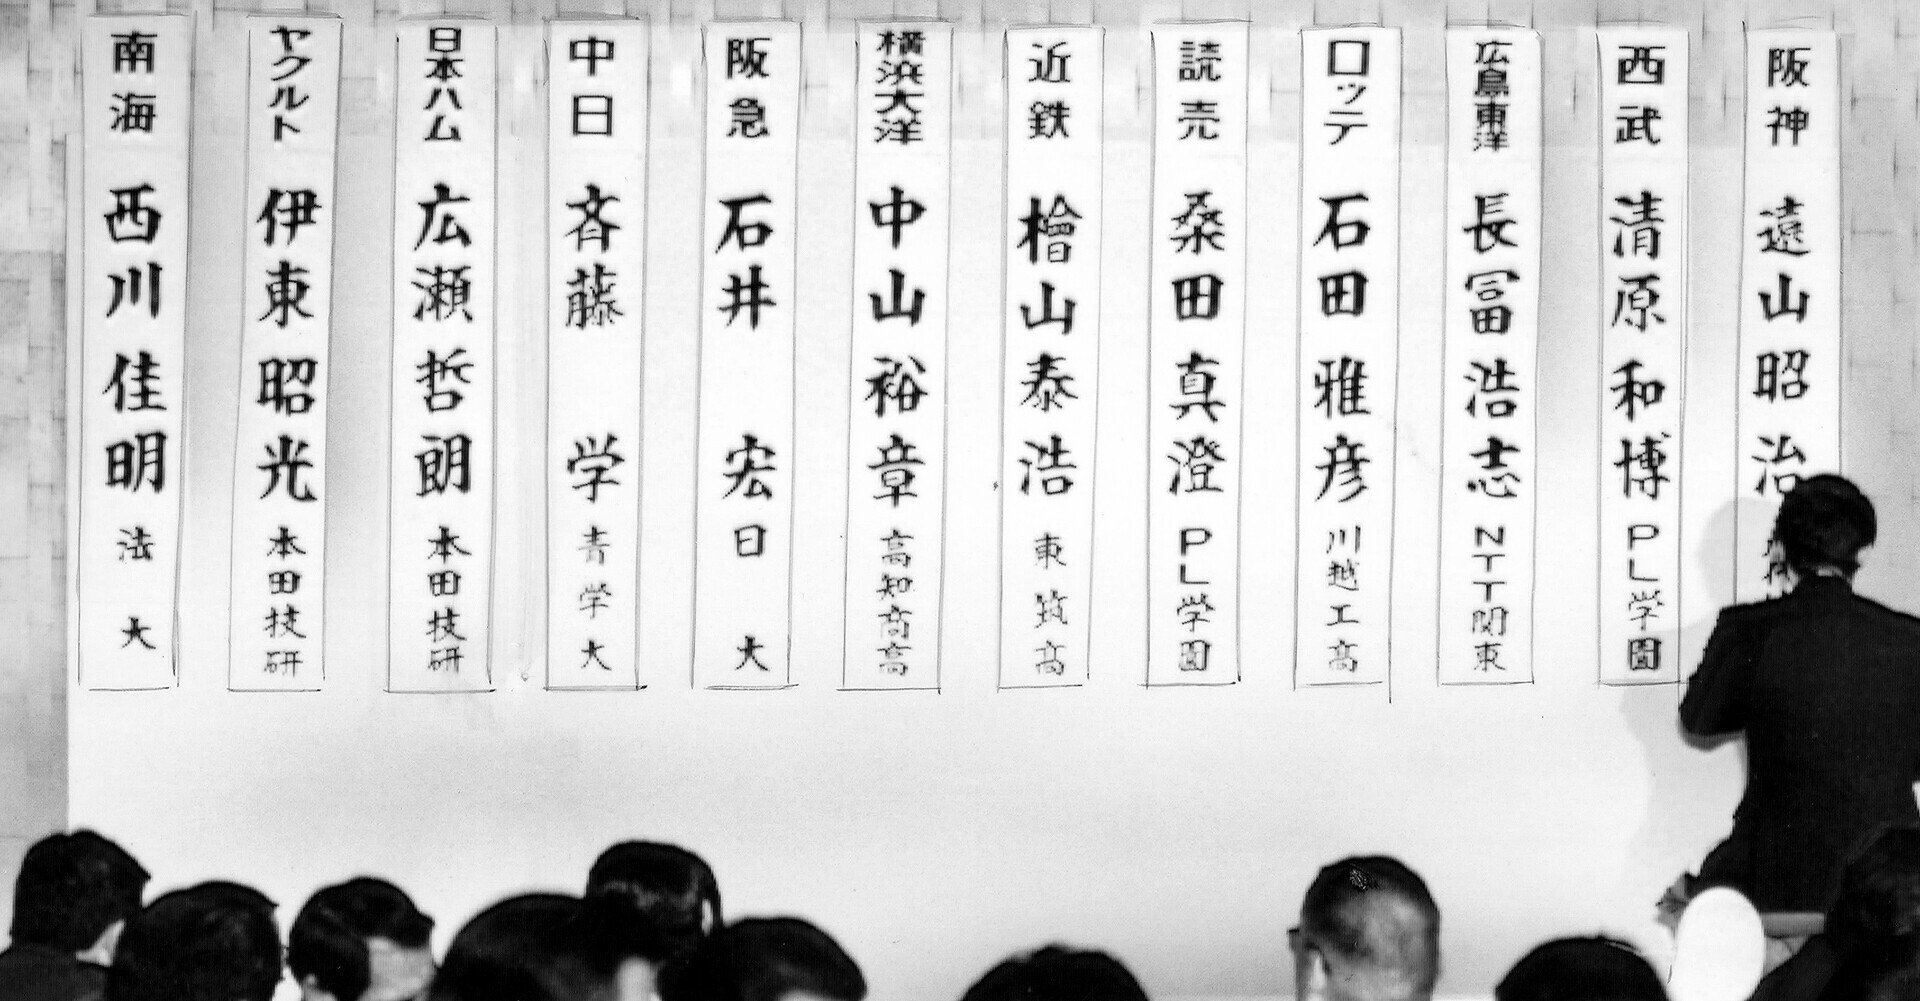 阪神 遠山昭治
西武 清原和博 PL学園
広島東洋 長冨浩志 NTT関東
ロッテ 石田雅彦 川越工高
読売 桑田真澄 PL学園
近鉄 檜山泰浩 東筑高
横浜大洋 中山裕章 高知商高
阪急 石井宏 日大
中日 斉藤学 青学大
日本ハム 広瀬哲朗 本田技研
ヤクルト 伊東昭光 本田技研
南海 西川佳明 法大